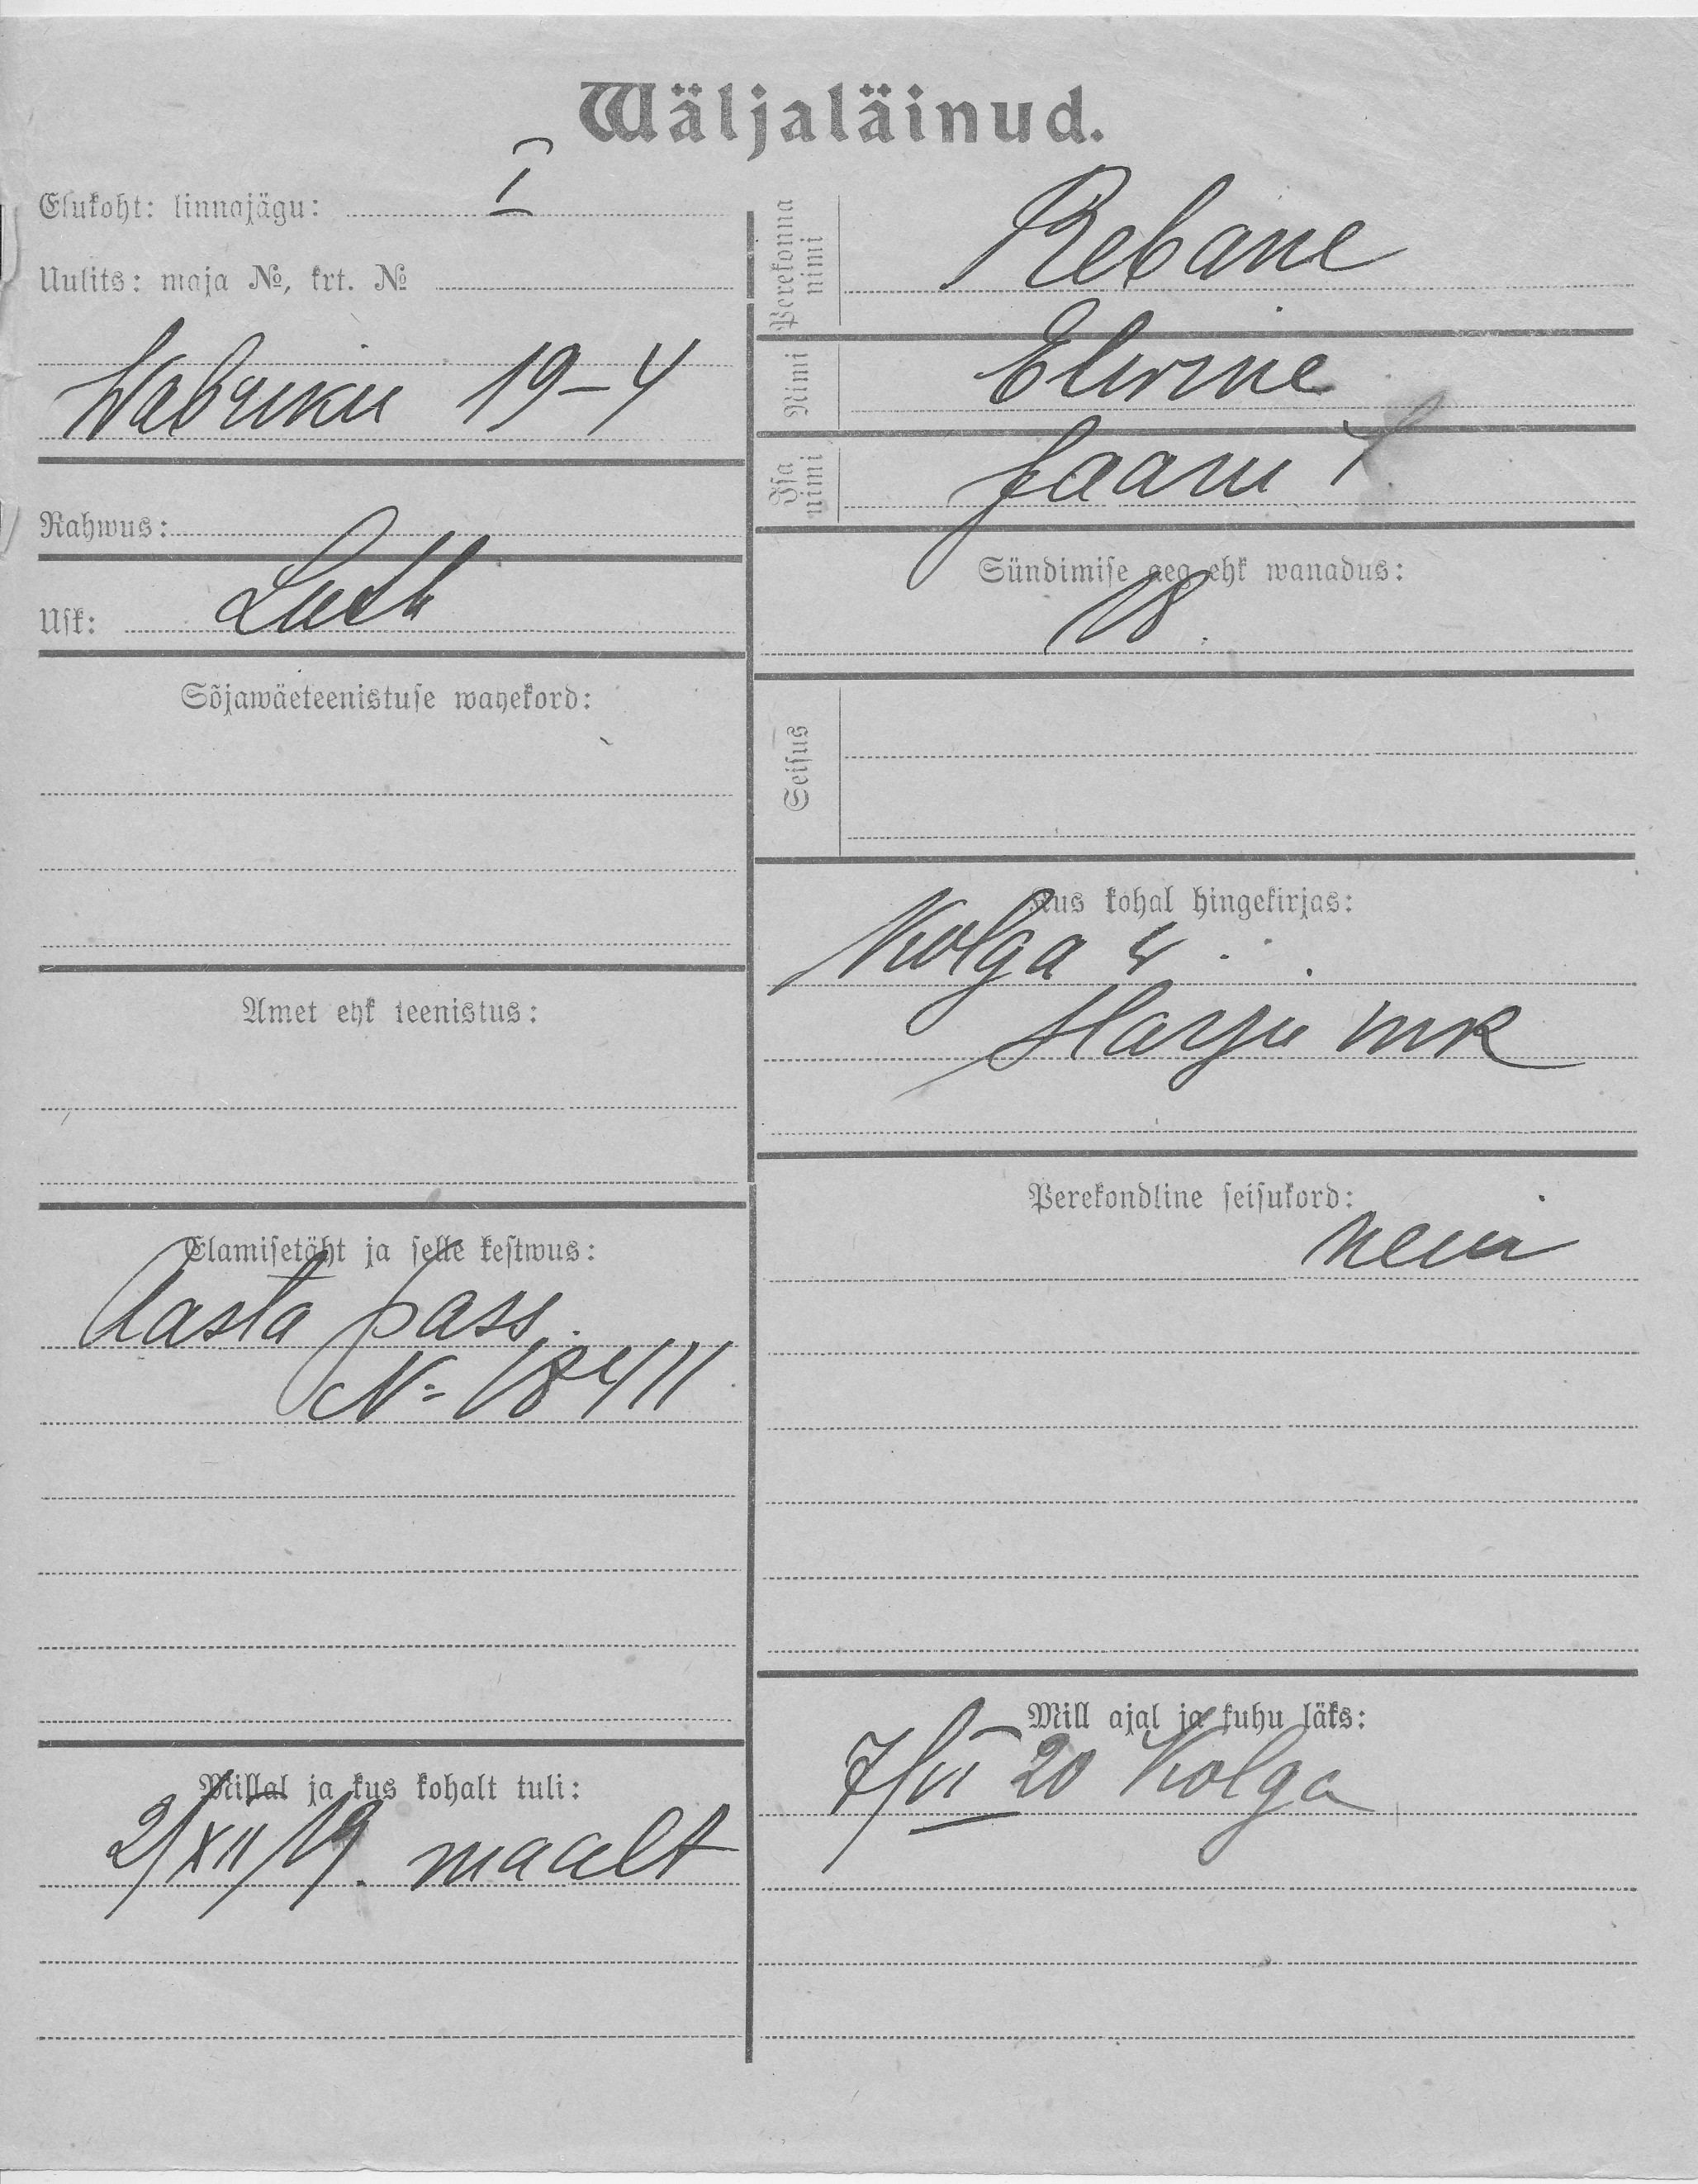 Wäljaläinud.
Elukoht: linnajägu: I
Uulits: maja №, krt. №
Wabriku 19-4
Rahwus:
Usk: Luth
Sõjawäeteenistuse wahekord:
Amet ehk teenistus:
Elamisetäht ja selle kestwus:
Aasta pass.
N= 18411.
Millal ja kus kohalt tuli:
2/XII/19. maalt
Perekonna nimi Rebane
Nimi Elwine
Isa nimi Jaani t.
Sündimise aeg ehk wanadus:
18.
Seisus
Kus kohal hingekirjas:
Kolga w.
Harju mk
Perekondline seisukord:
neiu
Mill ajal ja kuhu läks:
7/VI 20 Kolga